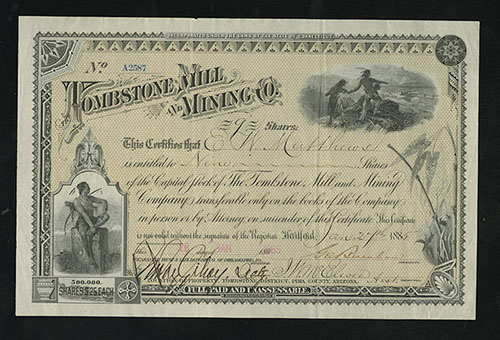 INCORPORATED UNDER THE LAWS OF THE STATE OF CONNECTICUT.
No. A2587
THE TOMBSTONE MILL
AND MINING CO.
9 Shares
This Certifies that E. N. Matthews
is entitled to Nine Shares
of the Capital Stock of The Tombstone, Mill and Mining
Company, transferable only on the books of the Company
in person or by Attorney, on surrender of this Certificate. This Certificate
is not valid without the signature of the Registrar. Hartford, Jan 27th 1885
28 JAN 1885
Secty.
LOCATION OF PROPERTY, TOMBSTONE DISTRICT, PIMA COUNTY, ARIZONA.
500,000.
SHARES $25 EACH
FULL PAID AND UNASSESSABLE.